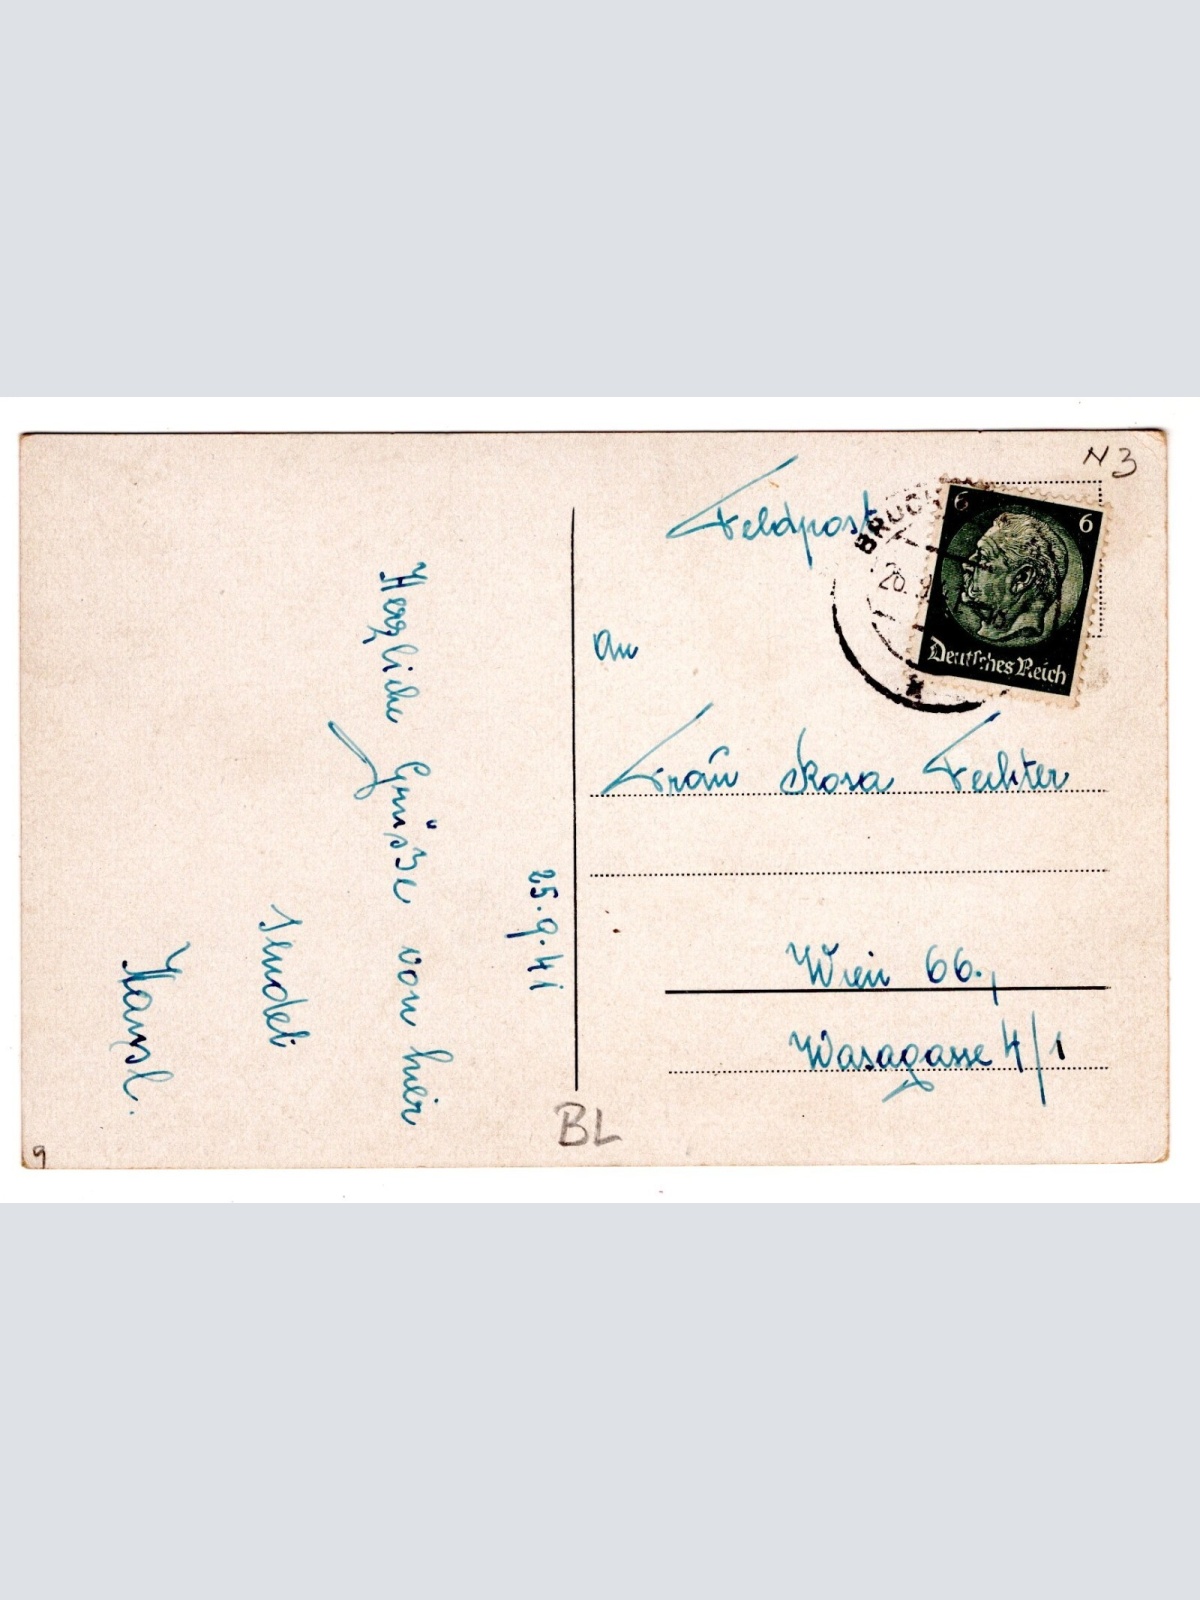 N3
Feldpost
BRUCK
26.9
6 6
Deutsches Reich
An
Frau Rosa Fechter
Wien 66.,
Wasagasse 4/1
25.9.41
Herzliche Grüsze von hier
sendet
Hansl.
BL
9